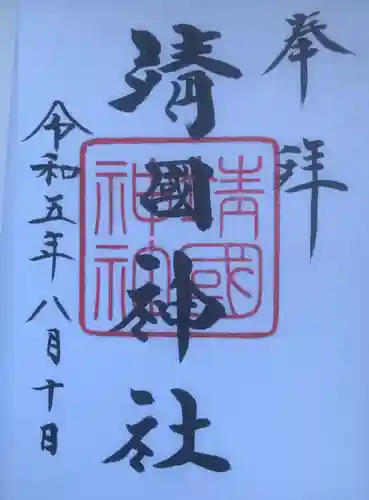 奉拝
靖國神社
靖國神社
令和五年八月十日